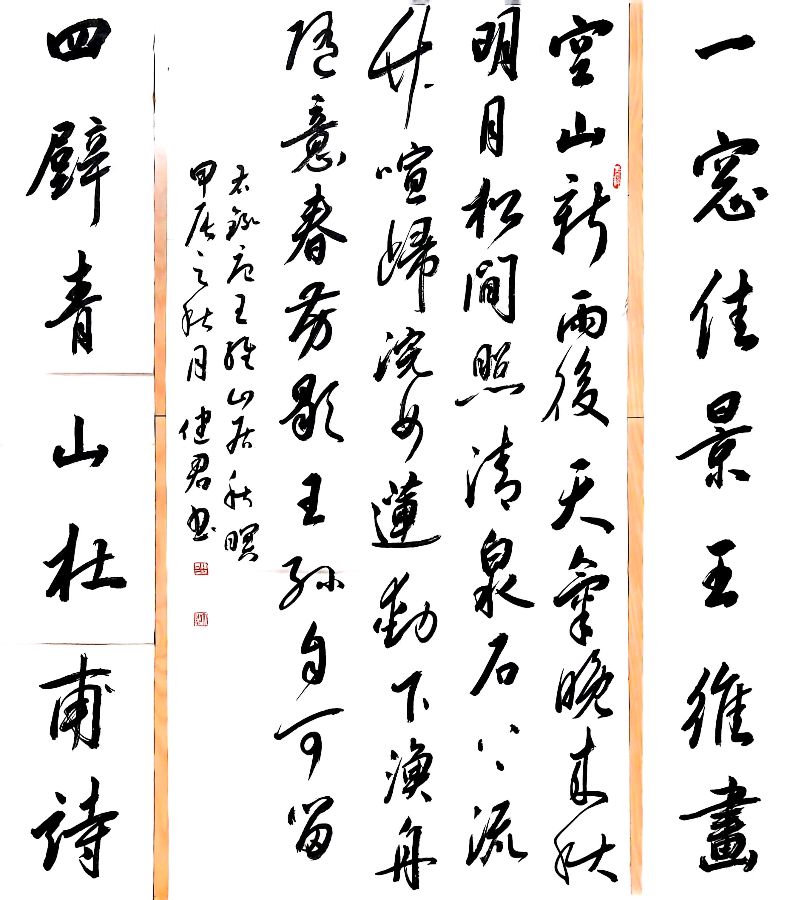 一窓佳景王維畫
空山新雨後天氣晚来秋
明月松間照清泉石上流
竹喧歸浣女蓮動下漁舟
随意春芳歇王孫自可留
右録唐王維山居秋暝
甲辰之秋月健君书
四壁青山杜甫詩